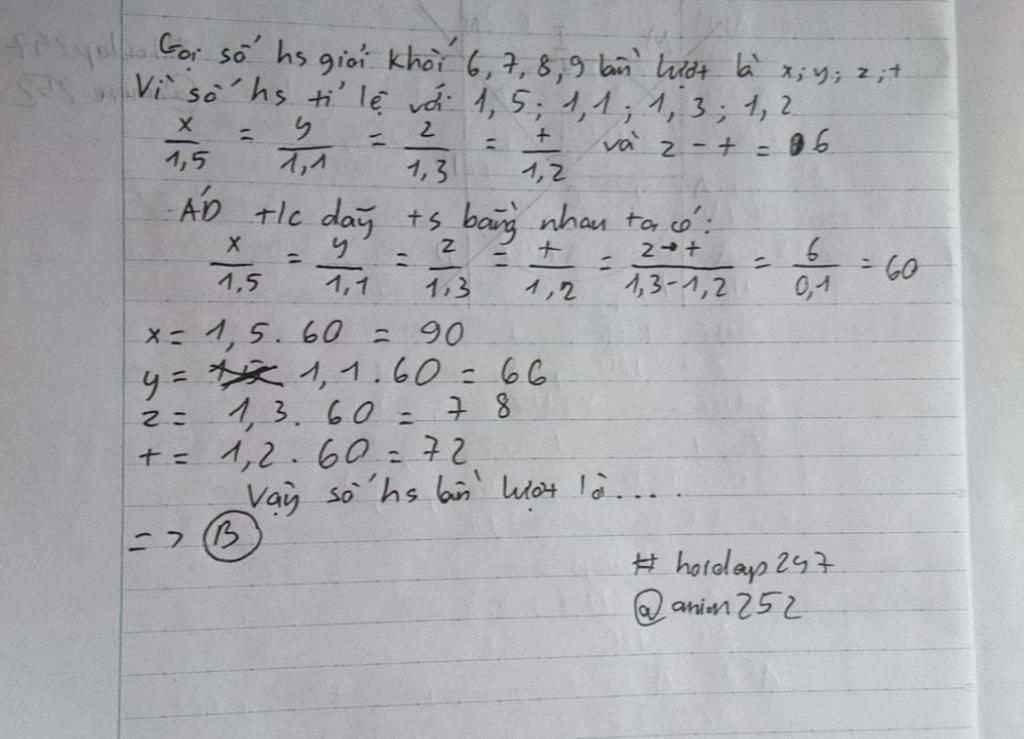 Gọi số hs giỏi khối 6, 7, 8, 9 lần lượt là x; y; z; t
Vì số hs tỉ lệ với: 1,5; 1,1; 1,3; 1,2
x/1,5 = y/1,1 = z/1,3 = t/1,2 và z - t = 6
ÁD t/c dãy ts bằng nhau ta có:
x/1,5 = y/1,1 = z/1,3 = t/1,2 = z-t/1,3-1,2 = 6/0,1 = 60
x = 1,5 . 60 = 90
y = 1,1 . 60 = 66
z = 1,3 . 60 = 78
t = 1,2 . 60 = 72
Vậy số hs lần lượt là....
=> B
# hoidap247
@anim252